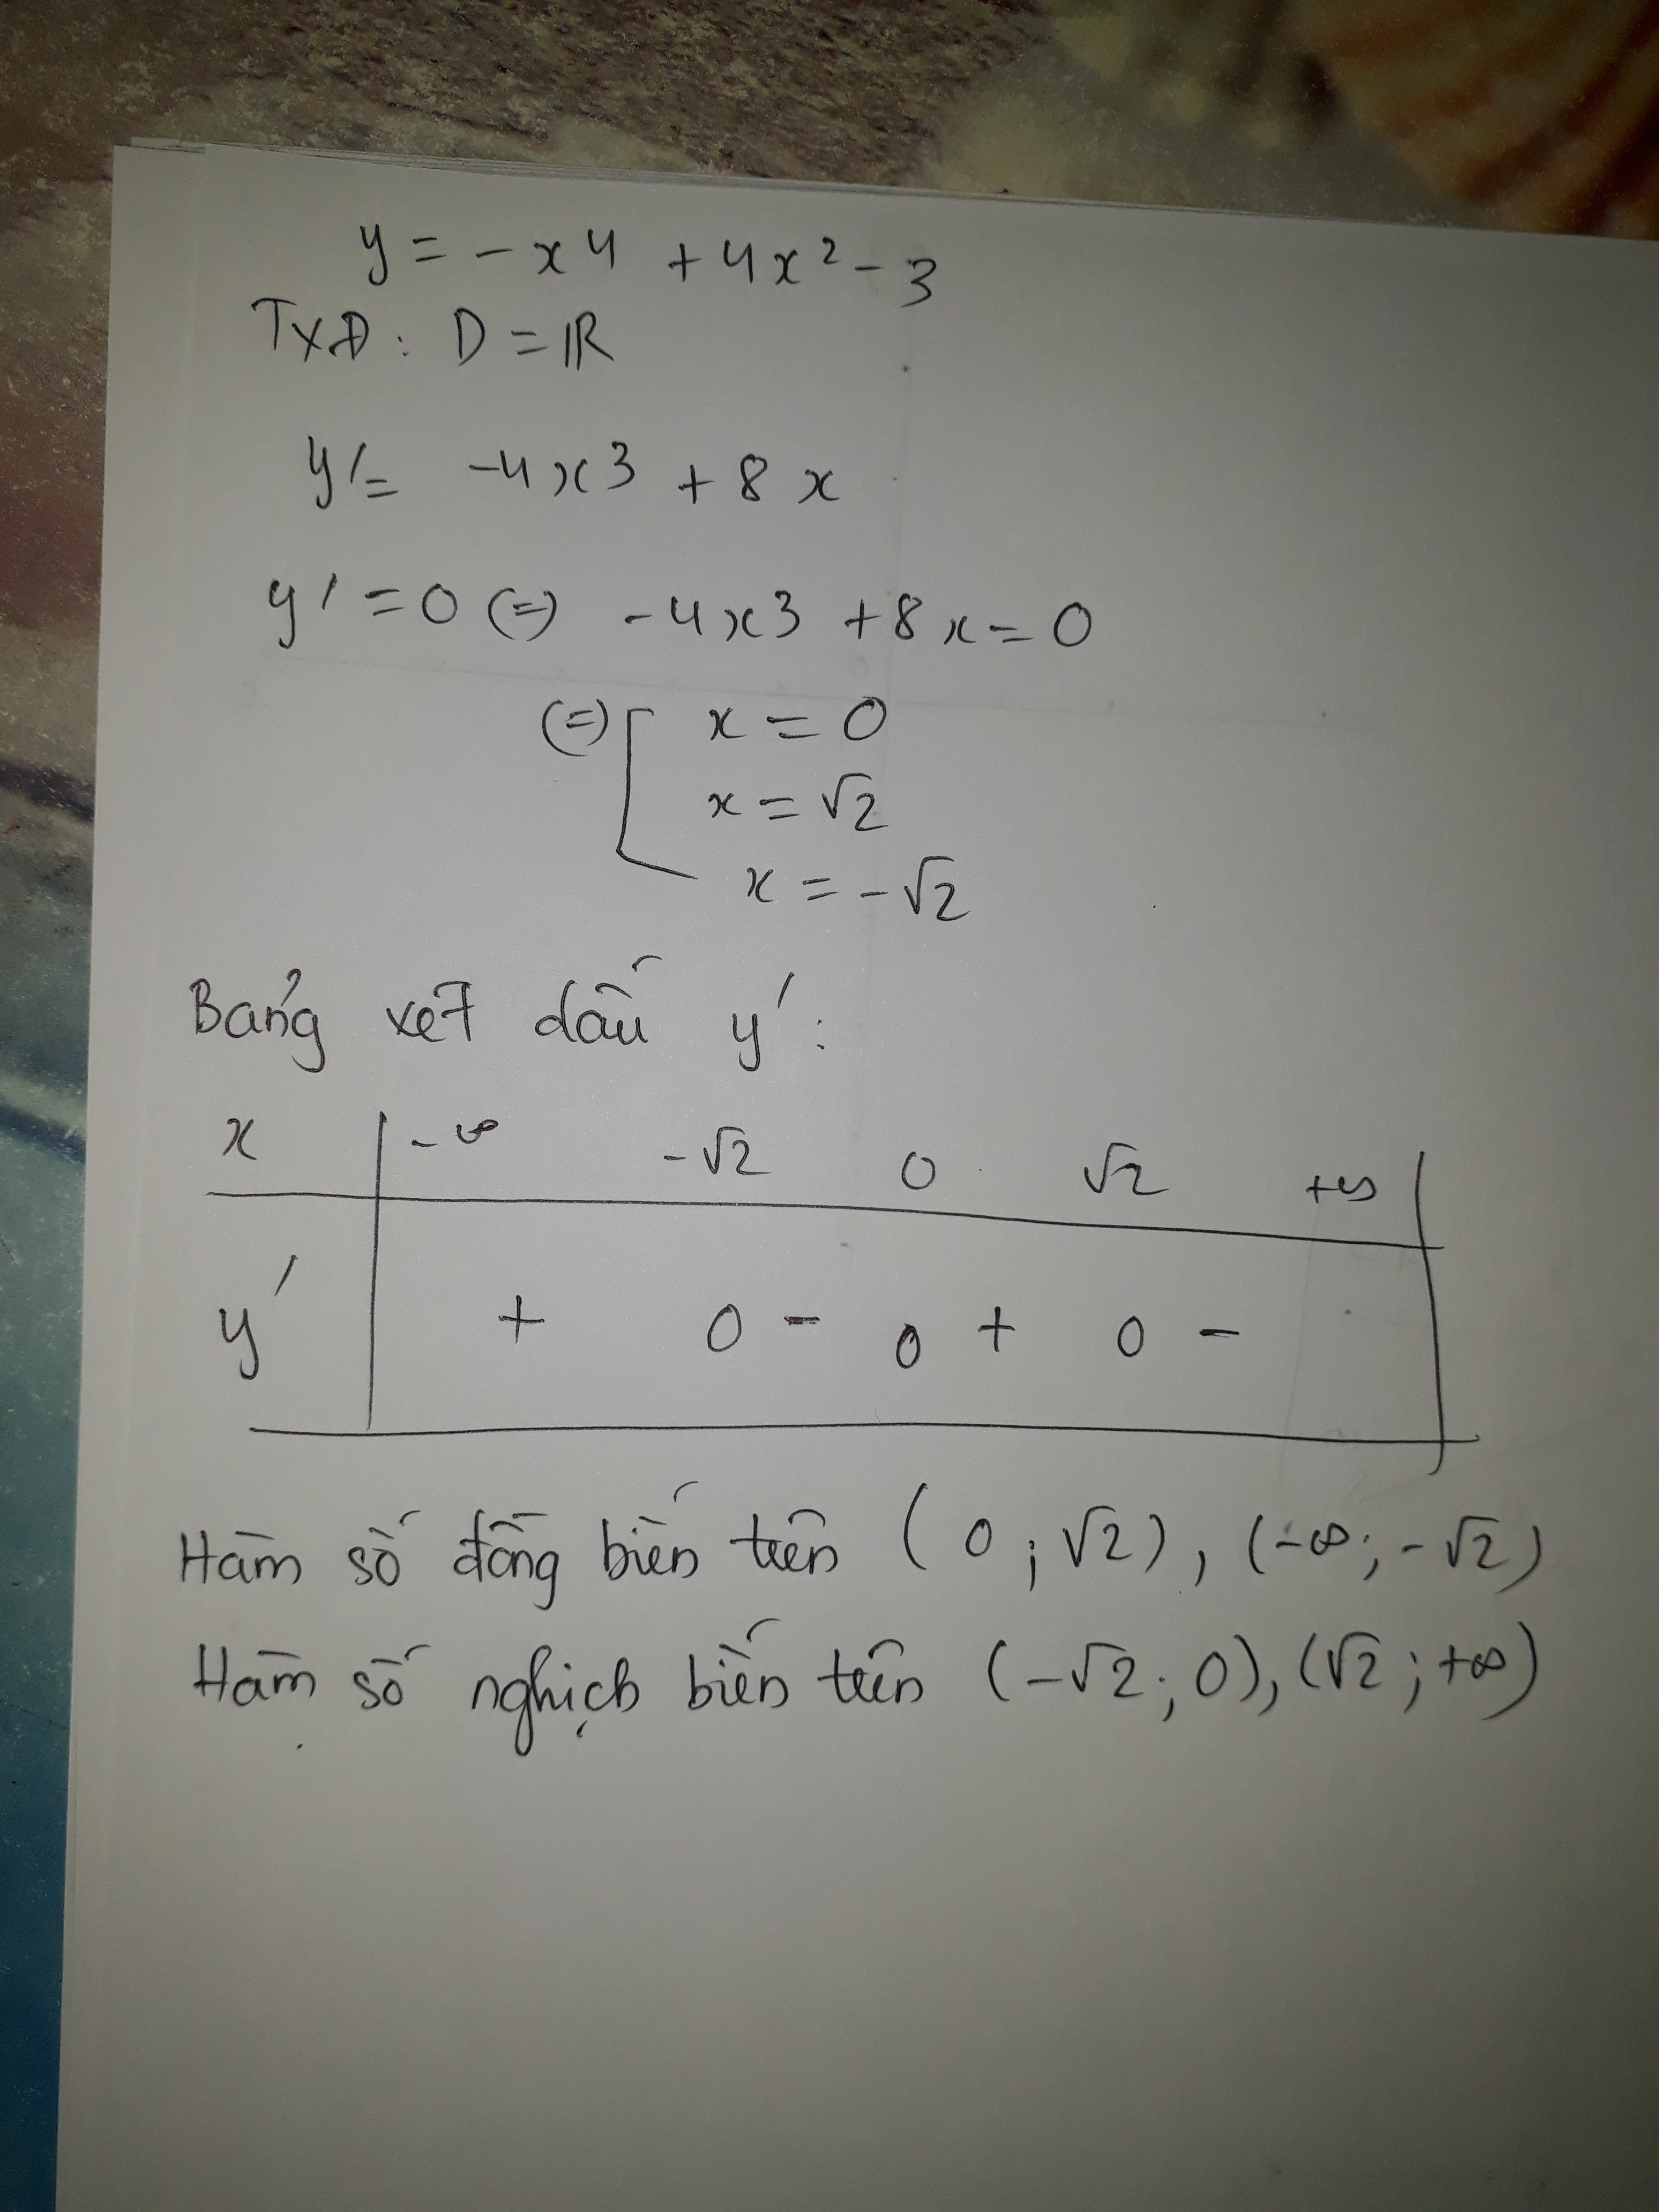 y = -x4 + 4x² - 3
TXĐ: D = ℝ
y' = -4x3 + 8x
y' = 0 (=) -4x3 + 8x = 0
(=) [ x = 0
x = √2
x = -√2
Bảng xét dấu y':
x | -∞ -√2 0 √2 +∞ |
y' | + 0 - 0 + 0 - |
Hàm số đồng biến trên (0; √2), (-∞; -√2)
Hàm số nghịch biến trên (-√2; 0), (√2; +∞)